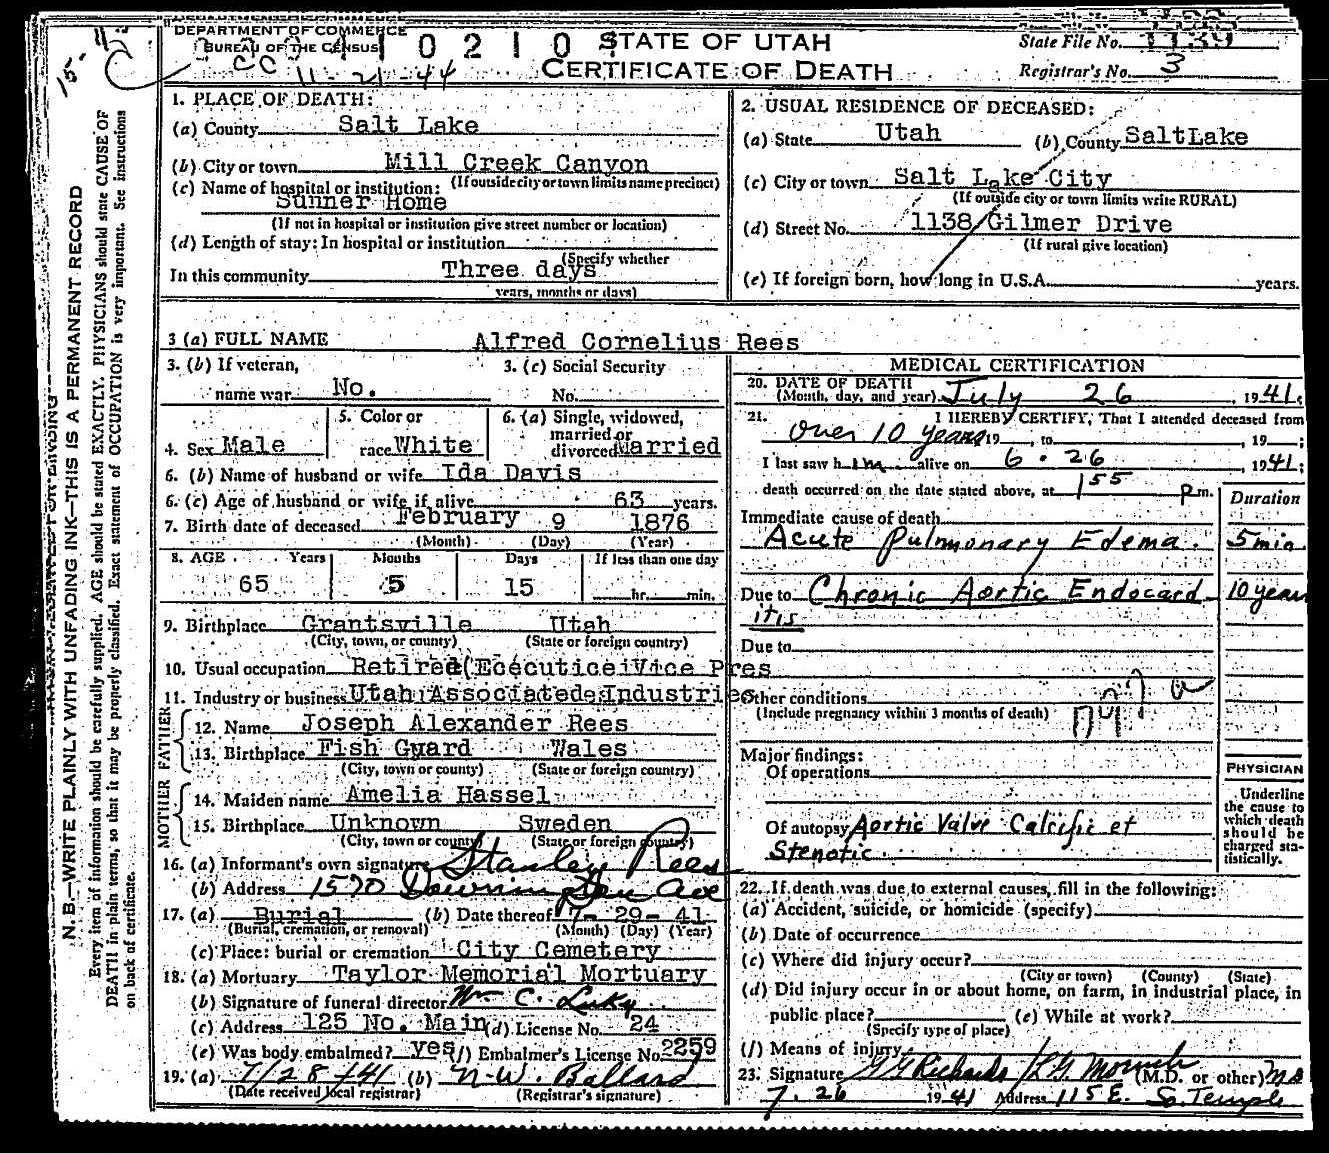 DEPARTMENT OF COMMERCE
BUREAU OF THE CENSUS
1 0 2 1 0
11-21-44
STATE OF UTAH
CERTIFICATE OF DEATH
State File No. 1139
Registrar's No. 3
N.B.—WRITE PLAINLY WITH UNFADING INK—THIS IS A PERMANENT RECORD
Every item of information should be carefully supplied. AGE should be stated EXACTLY. PHYSICIANS should state CAUSE OF
DEATH in plain terms, so that it may be properly classified. Exact statement of OCCUPATION is very important. See instructions
on back of certificate.
1. PLACE OF DEATH:
(a) County Salt Lake
(b) City or town Mill Creek Canyon
(If outside city or town limits name precinct)
(c) Name of hospital or institution:
Sunner Home
(If not in hospital or institution give street number or location)
(d) Length of stay: In hospital or institution
(Specify whether
In this community Three days
years, months or days)
2. USUAL RESIDENCE OF DECEASED:
(a) State Utah (b) County Salt Lake
(c) City or town Salt Lake City
(If outside city or town limits write RURAL)
(d) Street No. 1138 Gilmer Drive
(If rural give location)
(e) If foreign born, how long in U.S.A. years.
3 (a) FULL NAME Alfred Cornelius Rees
3. (b) If veteran,
name war No.
3. (c) Social Security
No.
4. Sex Male
5. Color or
race White
6. (a) Single, widowed,
married or
divorced Married
6. (b) Name of husband or wife Ida Davis
6. (c) Age of husband or wife if alive 63 years.
7. Birth date of deceased February 9 1876
(Month) (Day) (Year)
8. AGE Years Months Days If less than one day
65 5 15 hr. min.
9. Birthplace Grantsville Utah
(City, town, or county) (State or foreign country)
10. Usual occupation Retired (Ececutice Vice Pres
11. Industry or business Utah Associated Industries
FATHER
12. Name Joseph Alexander Rees
13. Birthplace Fish Guard Wales
(City, town or county) (State or foreign country)
MOTHER
14. Maiden name Amelia Hassel
15. Birthplace Unknown Sweden
(City, town or county) (State or foreign country)
16. (a) Informant's own signature Stanley Rees
(b) Address 1570 Ave
17. (a) Burial (b) Date thereof 7-29-41
(Burial, cremation, or removal) (Month) (Day) (Year)
(c) Place: burial or cremation City Cemetery
18. (a) Mortuary Taylor Memorial Mortuary
(b) Signature of funeral director Wm C.
(c) Address 125 No. Main (d) License No. 24
(e) Was body embalmed? yes (f) Embalmer's License No. 2259
19. (a) 7/28/41 (b) N.W. Ballard
(Date received local registrar) (Registrar's signature)
MEDICAL CERTIFICATION
20. DATE OF DEATH
(Month, day, and year) July 26, 1941;
21. I HEREBY CERTIFY, That I attended deceased from
over 10 years 19 , to , 19 ;
I last saw h im alive on 6 . 26 , 1941;
death occurred on the date stated above, at 1 55 p m.
Duration
Immediate cause of death
Acute Pulmonary Edema. 5 min.
Due to Chronic Aortic Endocard- 10 years
itis
Due to
Other conditions
(Include pregnancy within 3 months of death)
Major findings:
Of operations
Of autopsy Aortic Valve Calcific et
Stenotic.
PHYSICIAN
Underline
the cause to
which death
should be
charged sta-
tistically.
22. If death was due to external causes, fill in the following:
(a) Accident, suicide, or homicide (specify)
(b) Date of occurrence
(c) Where did injury occur?
(City or town) (County) (State)
(d) Did injury occur in or about home, on farm, in industrial place, in
public place? (e) While at work?
(Specify type of place)
(f) Means of injury
23. Signature G G Richards / (M.D. or other) MD
7. 26 1941 Address 115 E. So. Temple